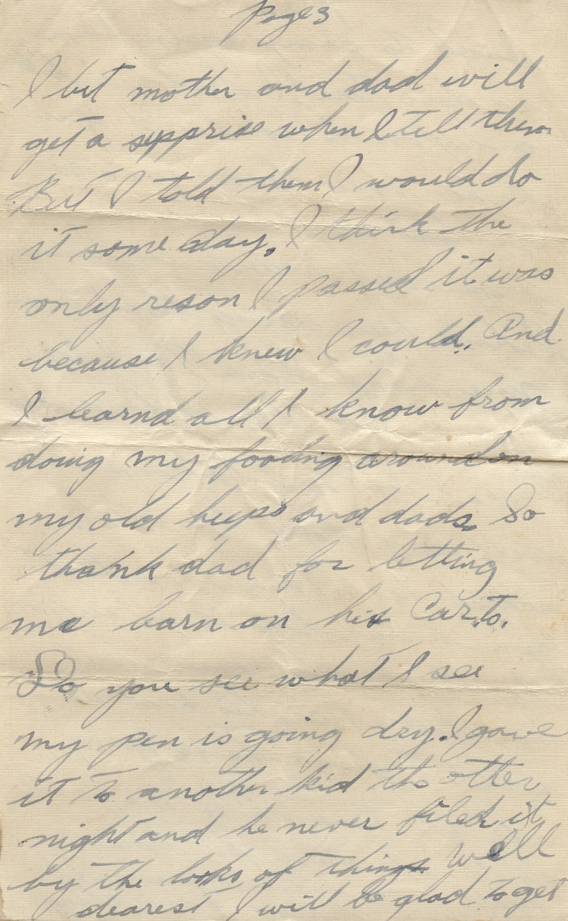 Page 3
I bet mother and dad will
get a supprise when I tell them
But I told them I would do
it some day, I think the
only reson I passed it was
because I knew I could, And
I learnd all I know from
doing my fooling around on
my old heeps and dads. So
thank dad for letting
me learn on his car to.
Do you see what I see
my pen is going dry. I gave
it to another kid the other
night and he never filed it
by the looks of things well
dearest I will be glad to get